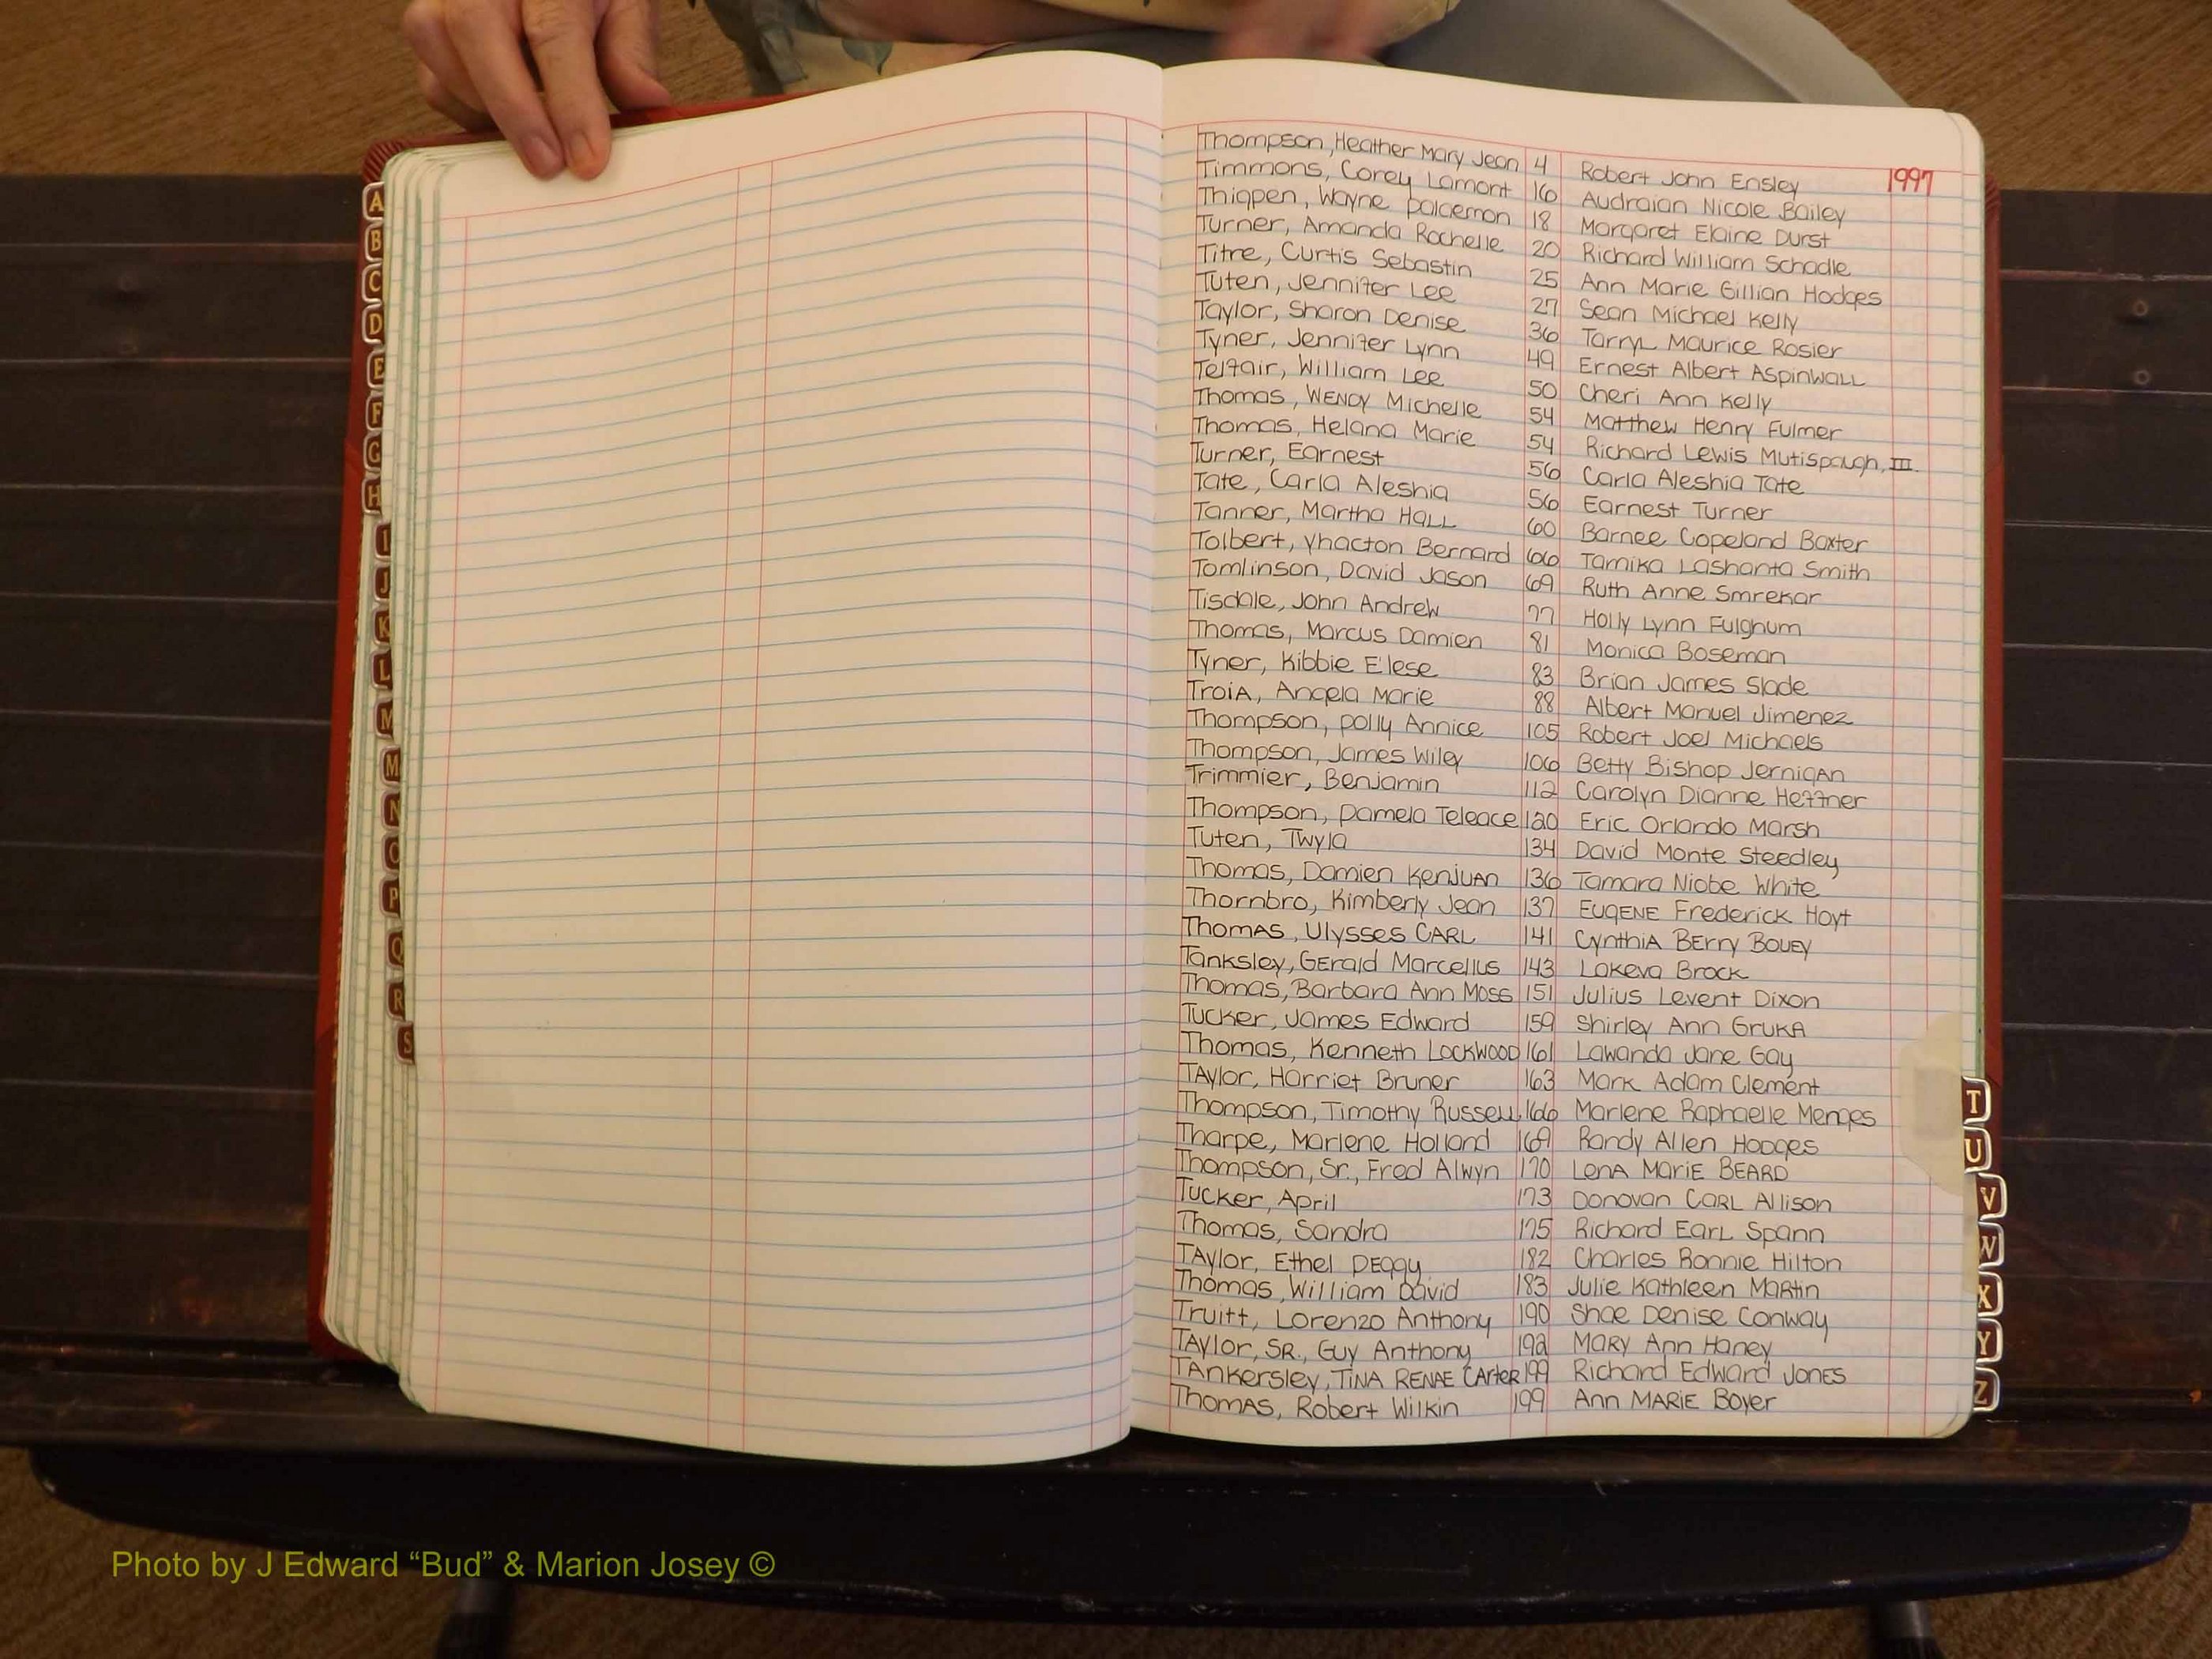 Thompson, Heather Mary Jean 4 Robert John Ensley 1997
Timmons, Corey Lamont 16 Audraian Nicole Bailey
Thigpen, Wayne Palcemon 18 Margaret Elaine Durst
Turner, Amanda Rochelle 20 Richard William Schadle
Titre, Curtis Sebastin 25 Ann Marie Gillian Hodges
Tuten, Jennifer Lee 27 Sean Michael Kelly
Taylor, Sharon Denise 36 Tarryl Maurice Rosier
Tyner, Jennifer Lynn 49 Ernest Albert Aspinwall
Telfair, William Lee 50 Cheri Ann Kelly
Thomas, Wendy Michelle 54 Matthew Henry Fulmer
Thomas, Helana Marie 54 Richard Lewis Mutispaugh, III.
Turner, Earnest 56 Carla Aleshia Tate
Tate, Carla Aleshia 56 Earnest Turner
Tanner, Martha Hall 60 Barnee Copeland Baxter
Tolbert, Yhacton Bernard 66 Tamika Lashanta Smith
Tomlinson, David Jason 69 Ruth Anne Smrekar
Tisdale, John Andrew 77 Holly Lynn Fulghum
Thomas, Marcus Damien 81 Monica Boseman
Tyner, Kibbie Elese 83 Brian James Slade
Troia, Angela Marie 88 Albert Manuel Jimenez
Thompson, Polly Annice 105 Robert Joel Michaels
Thompson, James Wiley 106 Betty Bishop Jernigan
Trimmier, Benjamin 112 Carolyn Dianne Heffner
Thompson, Pamela Teleace 120 Eric Orlando Marsh
Tuten, Twyla 134 David Monte Steedley
Thomas, Damien Kenjuan 136 Tamara Niobe White
Thornbro, Kimberly Jean 137 Eugene Frederick Hoyt
Thomas, Ulysses Carl 141 Cynthia Berry Bouey
Tanksley, Gerald Marcellus 143 Lakeva Brock
Thomas, Barbara Ann Moss 151 Julius Levent Dixon
Tucker, James Edward 159 Shirley Ann Gruka
Thomas, Kenneth Lockwood 161 Lawanda Jane Gay
Taylor, Harriet Bruner 163 Mark Adam Clement
Thompson, Timothy Russell 166 Marlene Raphaelle Menges
Tharpe, Marlene Holland 169 Randy Allen Hodges
Thompson, Sr., Fred Alwyn 170 Lena Marie Beard
Tucker, April 173 Donovan Carl Allison
Thomas, Sandra 175 Richard Earl Spann
Taylor, Ethel Peggy 182 Charles Ronnie Hilton
Thomas, William David 183 Julie Kathleen Martin
Truitt, Lorenzo Anthony 190 Shae Denise Conway
Taylor, Sr., Guy Anthony 192 Mary Ann Haney
Tankersley, Tina Renae Carter 199 Richard Edward Jones
Thomas, Robert Wilkin 199 Ann Marie Boyer
A
B
C
D
E
F
G
H
I
J
K
L
M
M
N
O
P
Q
R
S
T
U
V
W
X
Y
Z
Photo by J Edward “Bud” & Marion Josey ©